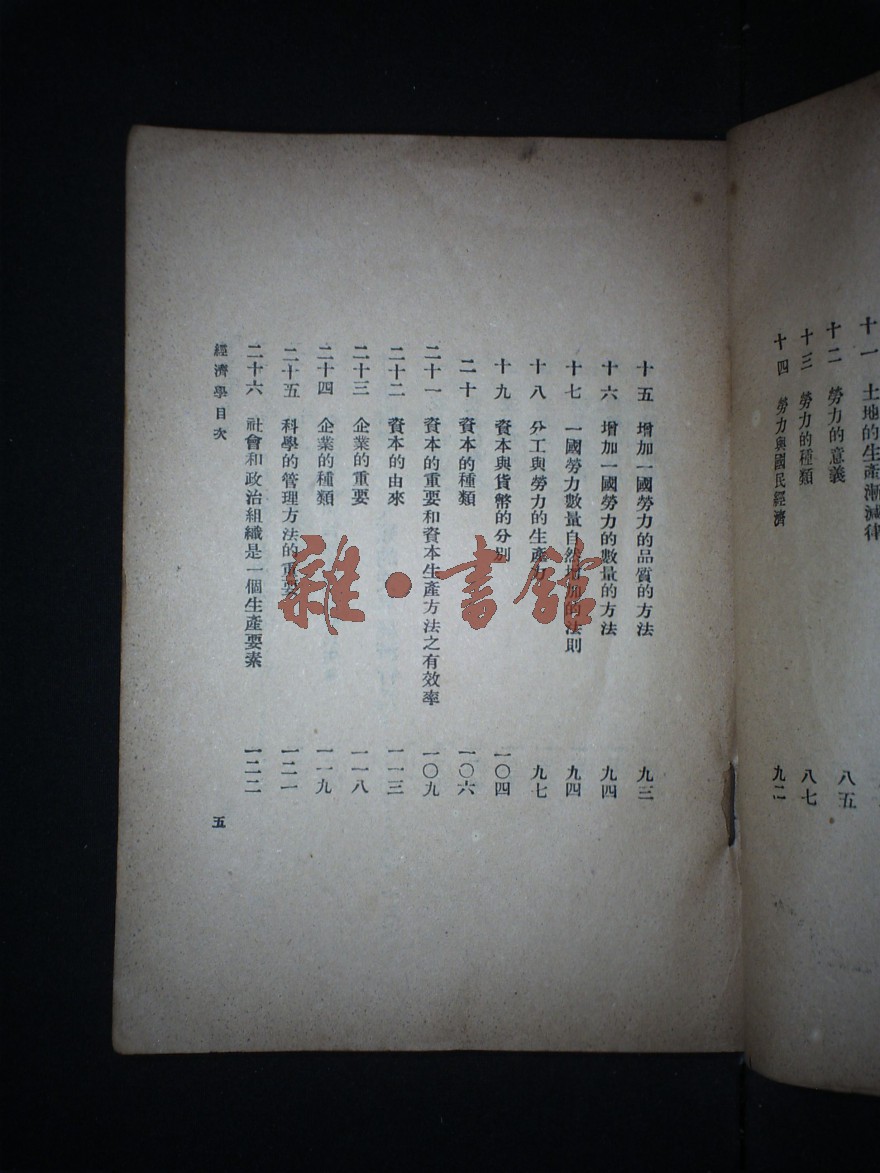 十一 土地的生產漸減律
十二 勞力的意義 八五
十三 勞力的種類 八七
十四 勞力與國民經濟 九二
十五 增加一國勞力的品質的方法 九三
十六 增加一國勞力的數量的方法 九四
十七 一國勞力數量自然增加的法則 九四
十八 分工與勞力的生產力 九七
十九 資本與貨幣的分別 一〇四
二十 資本的種類 一〇六
二十一 資本的重要和資本生產方法之有效率 一〇九
二十二 資本的由來 一一三
二十三 企業的重要 一一八
二十四 企業的種類 一一九
二十五 科學的管理方法的重要 一二一
二十六 社會和政治組織是一個生產要素 一二二
經濟學目次 五
雜·書館